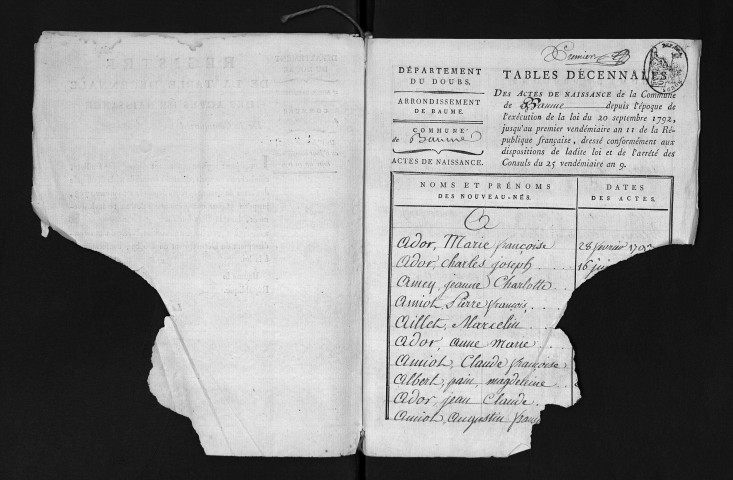 Premier
DÉPARTEMENT
DU DOUBS.
ARRONDISSEMENT
DE BAUME.
COMMUNE
de Baume
ACTES DE NAISSANCE.
TABLES DÉCENNALES
DES ACTES DE NAISSANCE de la Commune
de Baume depuis l'époque de
l'exécution de la loi du 20 septembre 1792,
jusqu'au premier vendémiaire an 11 de la Ré-
publique française, dressé conformément aux
dispositions de ladite loi et de l'arrêté des
Consuls du 25 vendémiaire an 9.
NOMS ET PRÉNOMS
DES NOUVEAU-NÉS.
DATES
DES ACTES.
A
Ador, Marie françoise 28 février 1793
Ador, charles joseph 16
Amey, jeanne Charlotte
Amiot, Pierre françois
Aillet, Marcelin
Ador, anne marie
Amiot, Claude françoise
Albert, magdeleine
Ador, jean Claude
Amiot, augustin